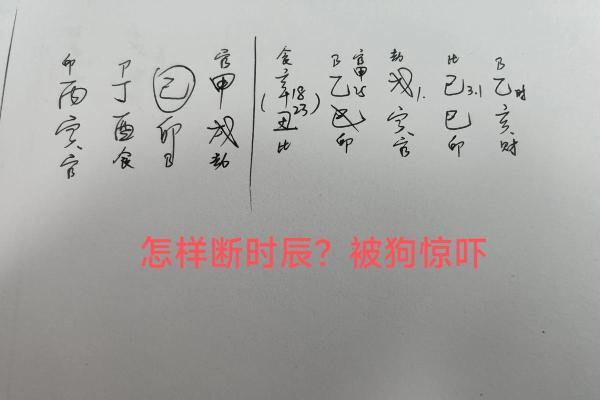 印 卩 官 食 卩 官 劫 比 卩
丙 丁 己 甲 辛 18 乙 甲 25 戊 1. 己 3.1 乙 时
寅 酉 卯 戌 ( 丑 23 ) 巳 寅 巳 亥
官 食 卩 劫 比 印 官 印 财
怎样断时辰？被狗惊吓